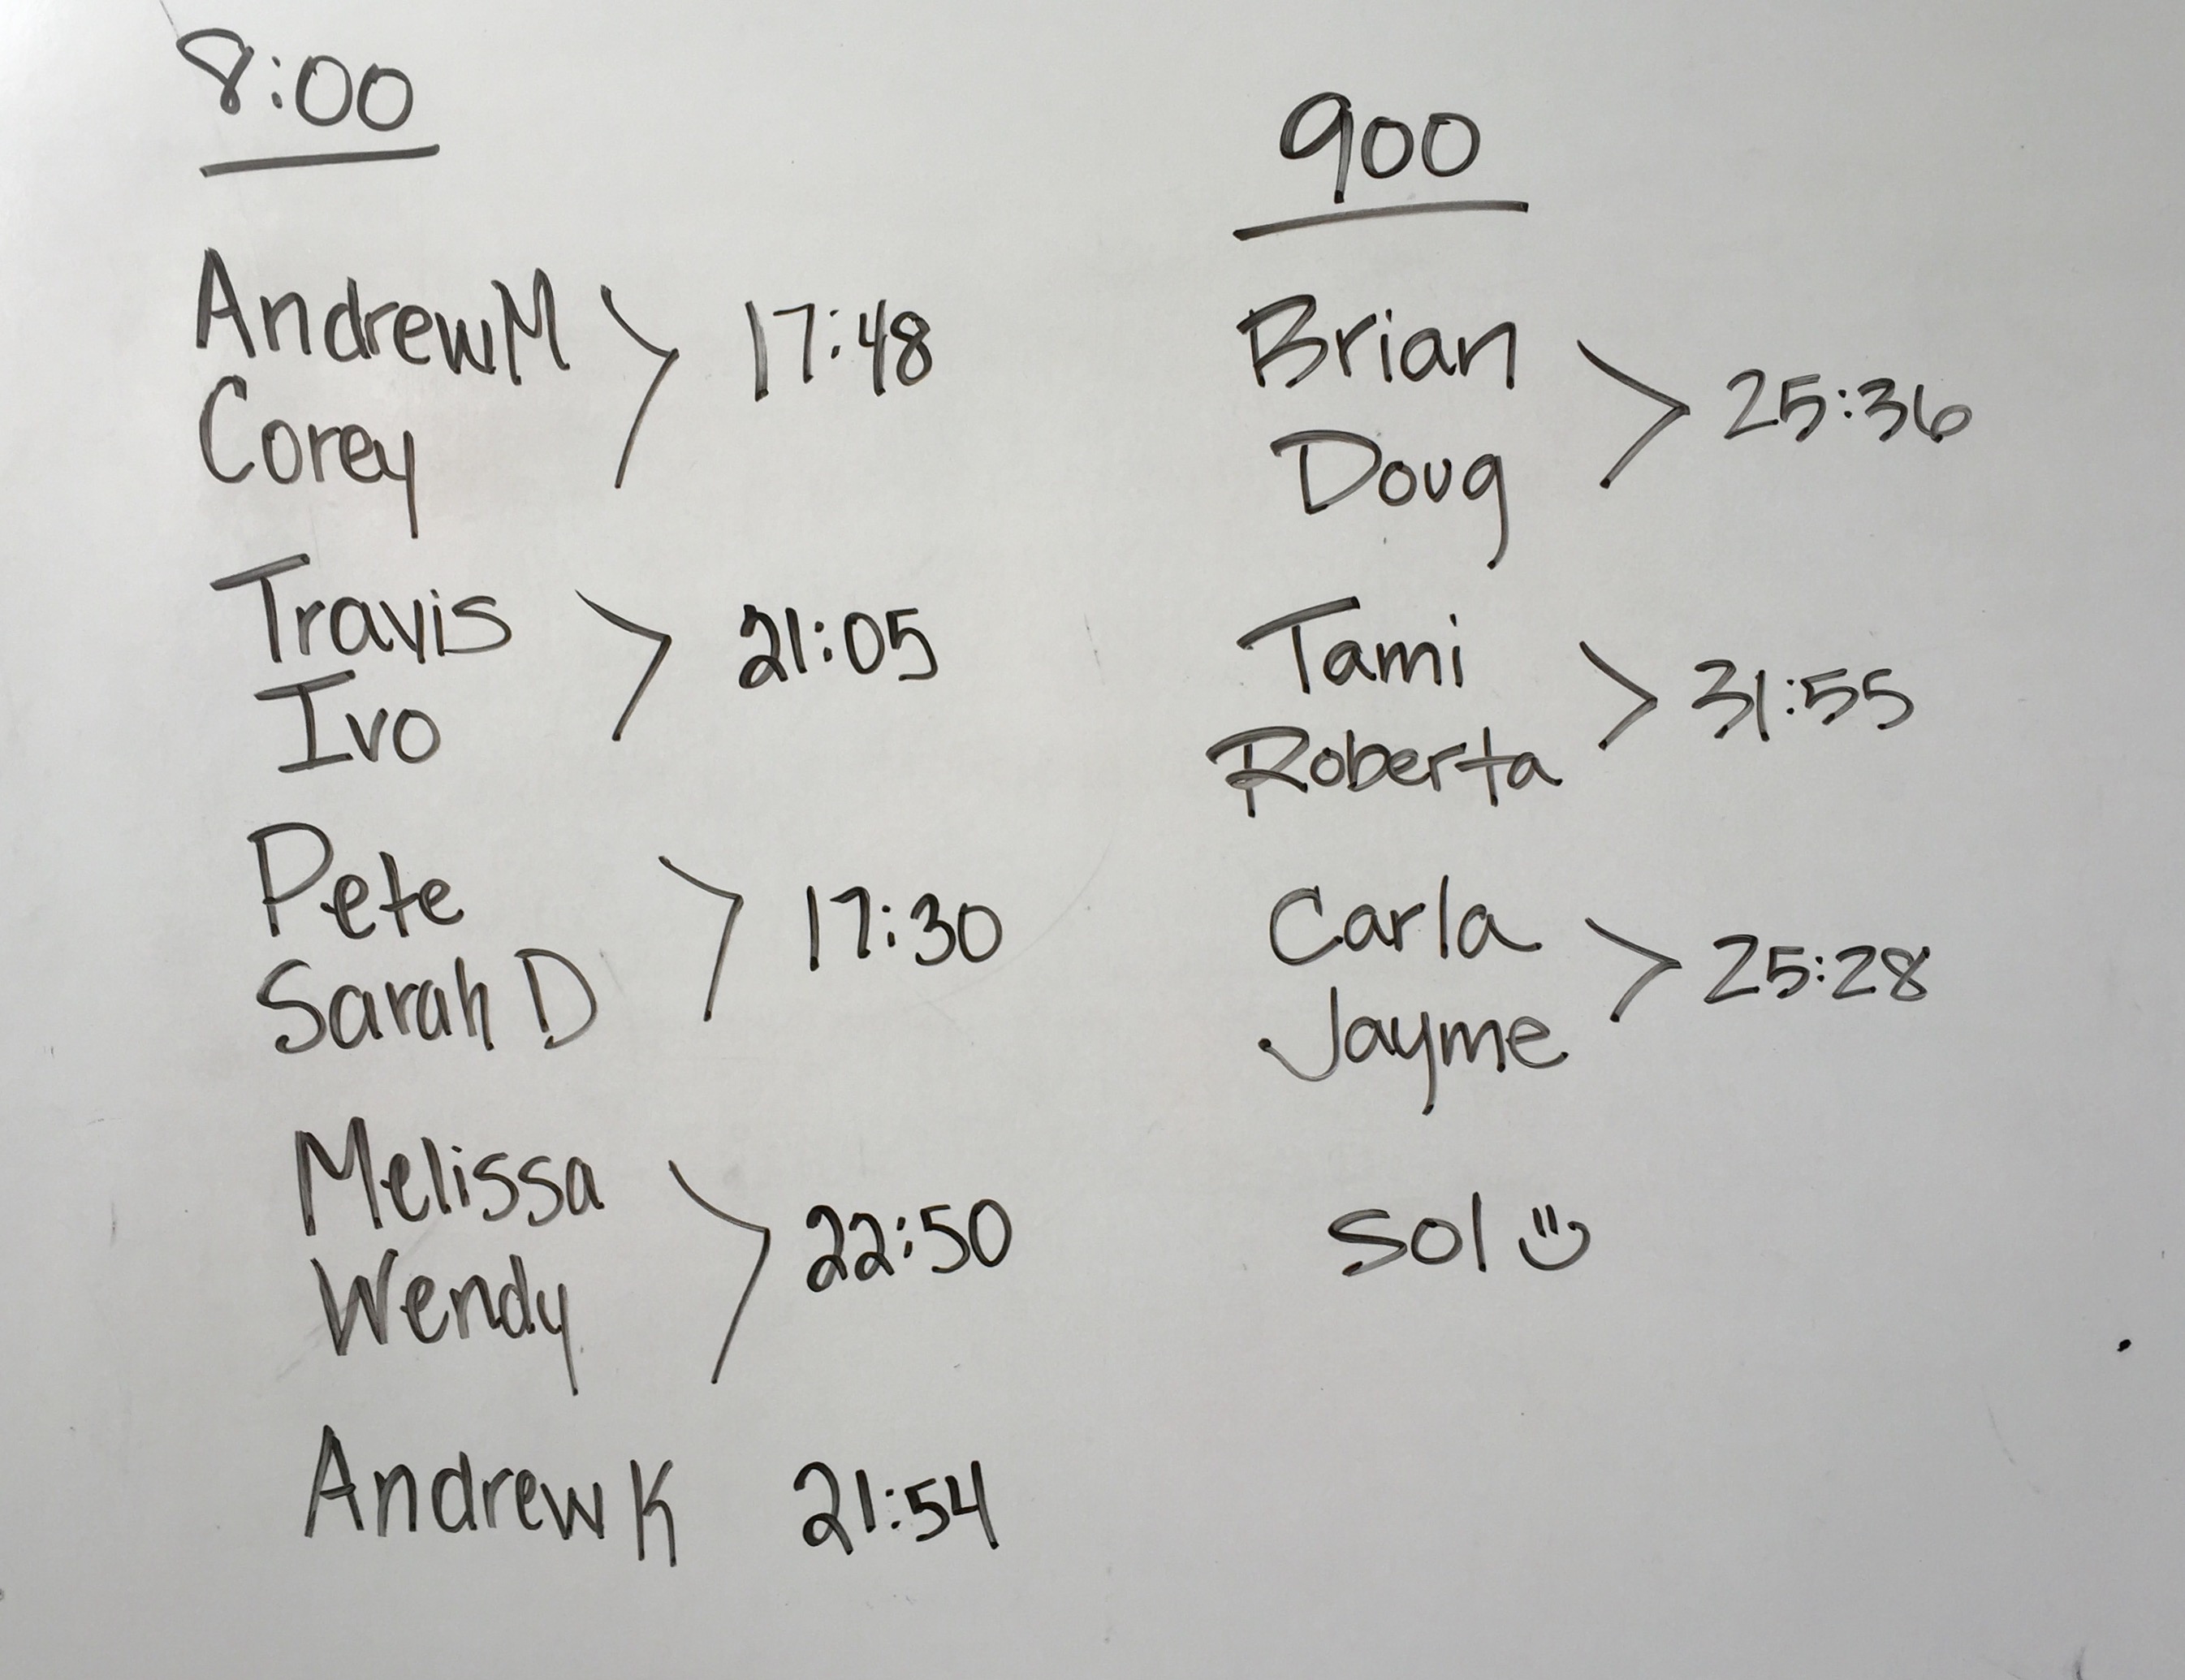 8:00
Andrew M
Corey
17:48
Travis
Ivo
21:05
Pete
Sarah D
17:30
Melissa
Wendy
22:50
Andrew K 21:54
900
Brian
Doug
25:36
Tami
Roberta
31:55
Carla
Jayme
25:28
Sol